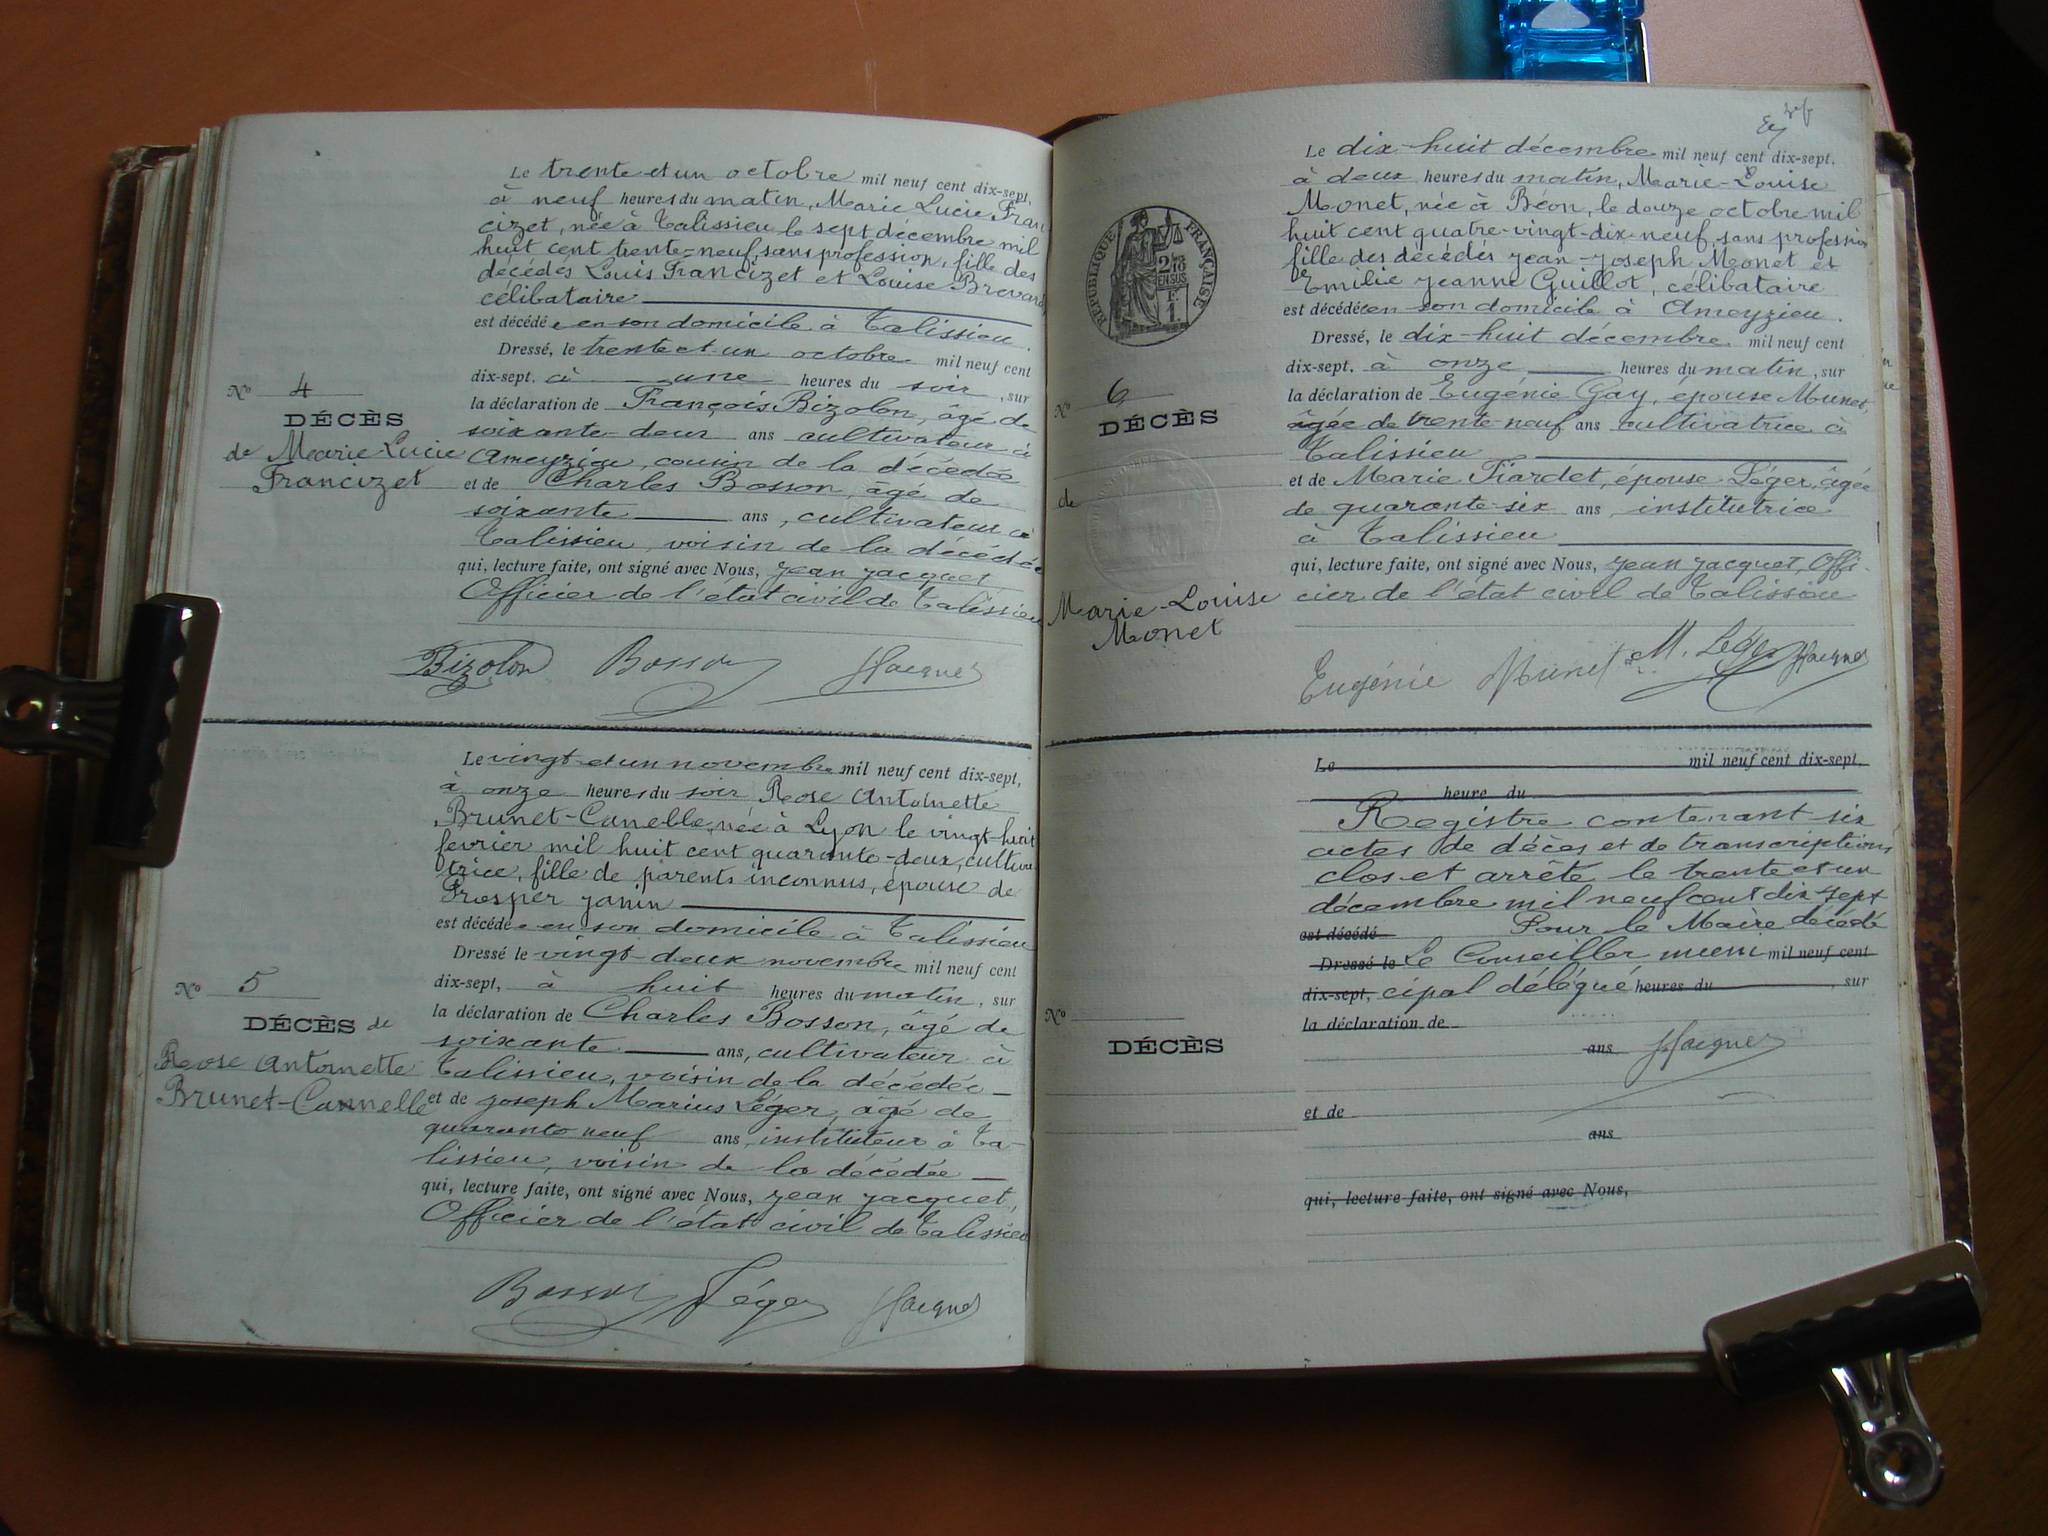 Le trente et un octobre mil neuf cent dix-sept,
à neuf heures du matin, Marie Lucie Fran
cizet, née à Talissieu le sept décembre mil
huit cent trente-neuf, sans profession, fille des
décédés Louis Francizet et Louise Brevard
célibataire
est décédée en son domicile à Talissieu.
Dressé, le trente et un octobre mil neuf cent
dix-sept. à une heures du soir, sur
la déclaration de François Bizolon, âgé de
soixante-deux ans cultivateur à
Ameyzieu, cousin de la décédée
et de Charles Bosson, âgé de
soixante ans, cultivateur à
Talissieu, voisin de la décédée
qui, lecture faite, ont signé avec Nous, Jean Jacquet
Officier de l'état civil de Talissieu
Bizolon Bosson JJacquet
No 4
DÉCÈS
de Marie Lucie
Francizet
Le vingt et un novembre mil neuf cent dix-sept,
à onze heures du soir Rose Antoinette
Brunet-Canelle, née à Lyon le vingt-huit
fevrier mil huit cent quarante-deux, cultiva
trice, fille de parents inconnus, épouse de
Prosper Janin
est décédée en son domicile à Talissieu
Dressé le vingt-deux novembre mil neuf cent
dix-sept, à huit heures du matin, sur
la déclaration de Charles Bosson, âgé de
soixante ans, cultivateur à
Talissieu, voisin de la décédée
et de Joseph Marius Léger, âgé de
quarante neuf ans, instituteur à Ta-
lissieu, voisin de la décédée
qui, lecture faite, ont signé avec Nous, Jean Jacquet,
Officier de l'état civil de Talissieu
Bosson Léger JJacquet
No 5
DÉCÈS de
Rose Antoinette
Brunet-Cannelle
Le dix-huit décembre mil neuf cent dix-sept.
à deux heures du matin, Marie-Louise
Monet, née à Béon, le douze octobre mil
huit cent quatre-vingt-dix-neuf, sans profession
fille des décédés Jean-Joseph Monet et
Emilie Jeanne Guillot, célibataire
est décédée en son domicile à Ameyzieu.
Dressé, le dix-huit décembre mil neuf cent
dix-sept. à onze heures du matin, sur
la déclaration de Eugénie Gay, épouse Munet,
âgée de trente-neuf ans cultivatrice à
Talissieu
et de Marie Fiardet, épouse Léger, âgée
de quarante-six ans, institutrice
à Talissieu
qui, lecture faite, ont signé avec Nous, Jean Jacquet, Offi-
cier de l'état civil de Talissieu
Eugénie Munet M. Léger JJacquet
RÉPUBLIQUE FRANÇAISE
2/10
EN SUS
1 F.
No 6
DÉCÈS
de
Marie-Louise
Monet
Le mil neuf cent dix-sept.
heure du
Registre contenant six
actes de décès et de transcriptions
clos et arrêté le trente et un
décembre mil neuf cent dix-sept
est décédé Pour le Maire décédé
Dressé le Le Conseiller muni mil neuf cent
dix-sept, cipal délégué heures du , sur
la déclaration de
ans JJacquet
et de
ans
qui, lecture faite, ont signé avec Nous,
No
DÉCÈS